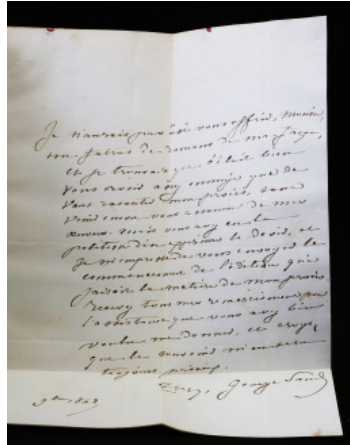 Je n'aurais pas osé vous offrir, Monsieur,
un fatras de romans de ma façon,
et je trouvais que c'était bien
vous avoir assez ennuyé que de
vous raconter mon procès, sans
vous encore vous de mes
œuvres. mais vous avez eu la
politesse d'en exprimer le désir, et
je m'empresse de vous envoyer le
commencement de l'édition qui
faisait la matière de mon procès
Recevez tous mes remerciemens pour
l'assistance que vous avez bien
voulu me donner, et croyez
que le souvenir m'en sera
toujours précieux.
George Sand
1843